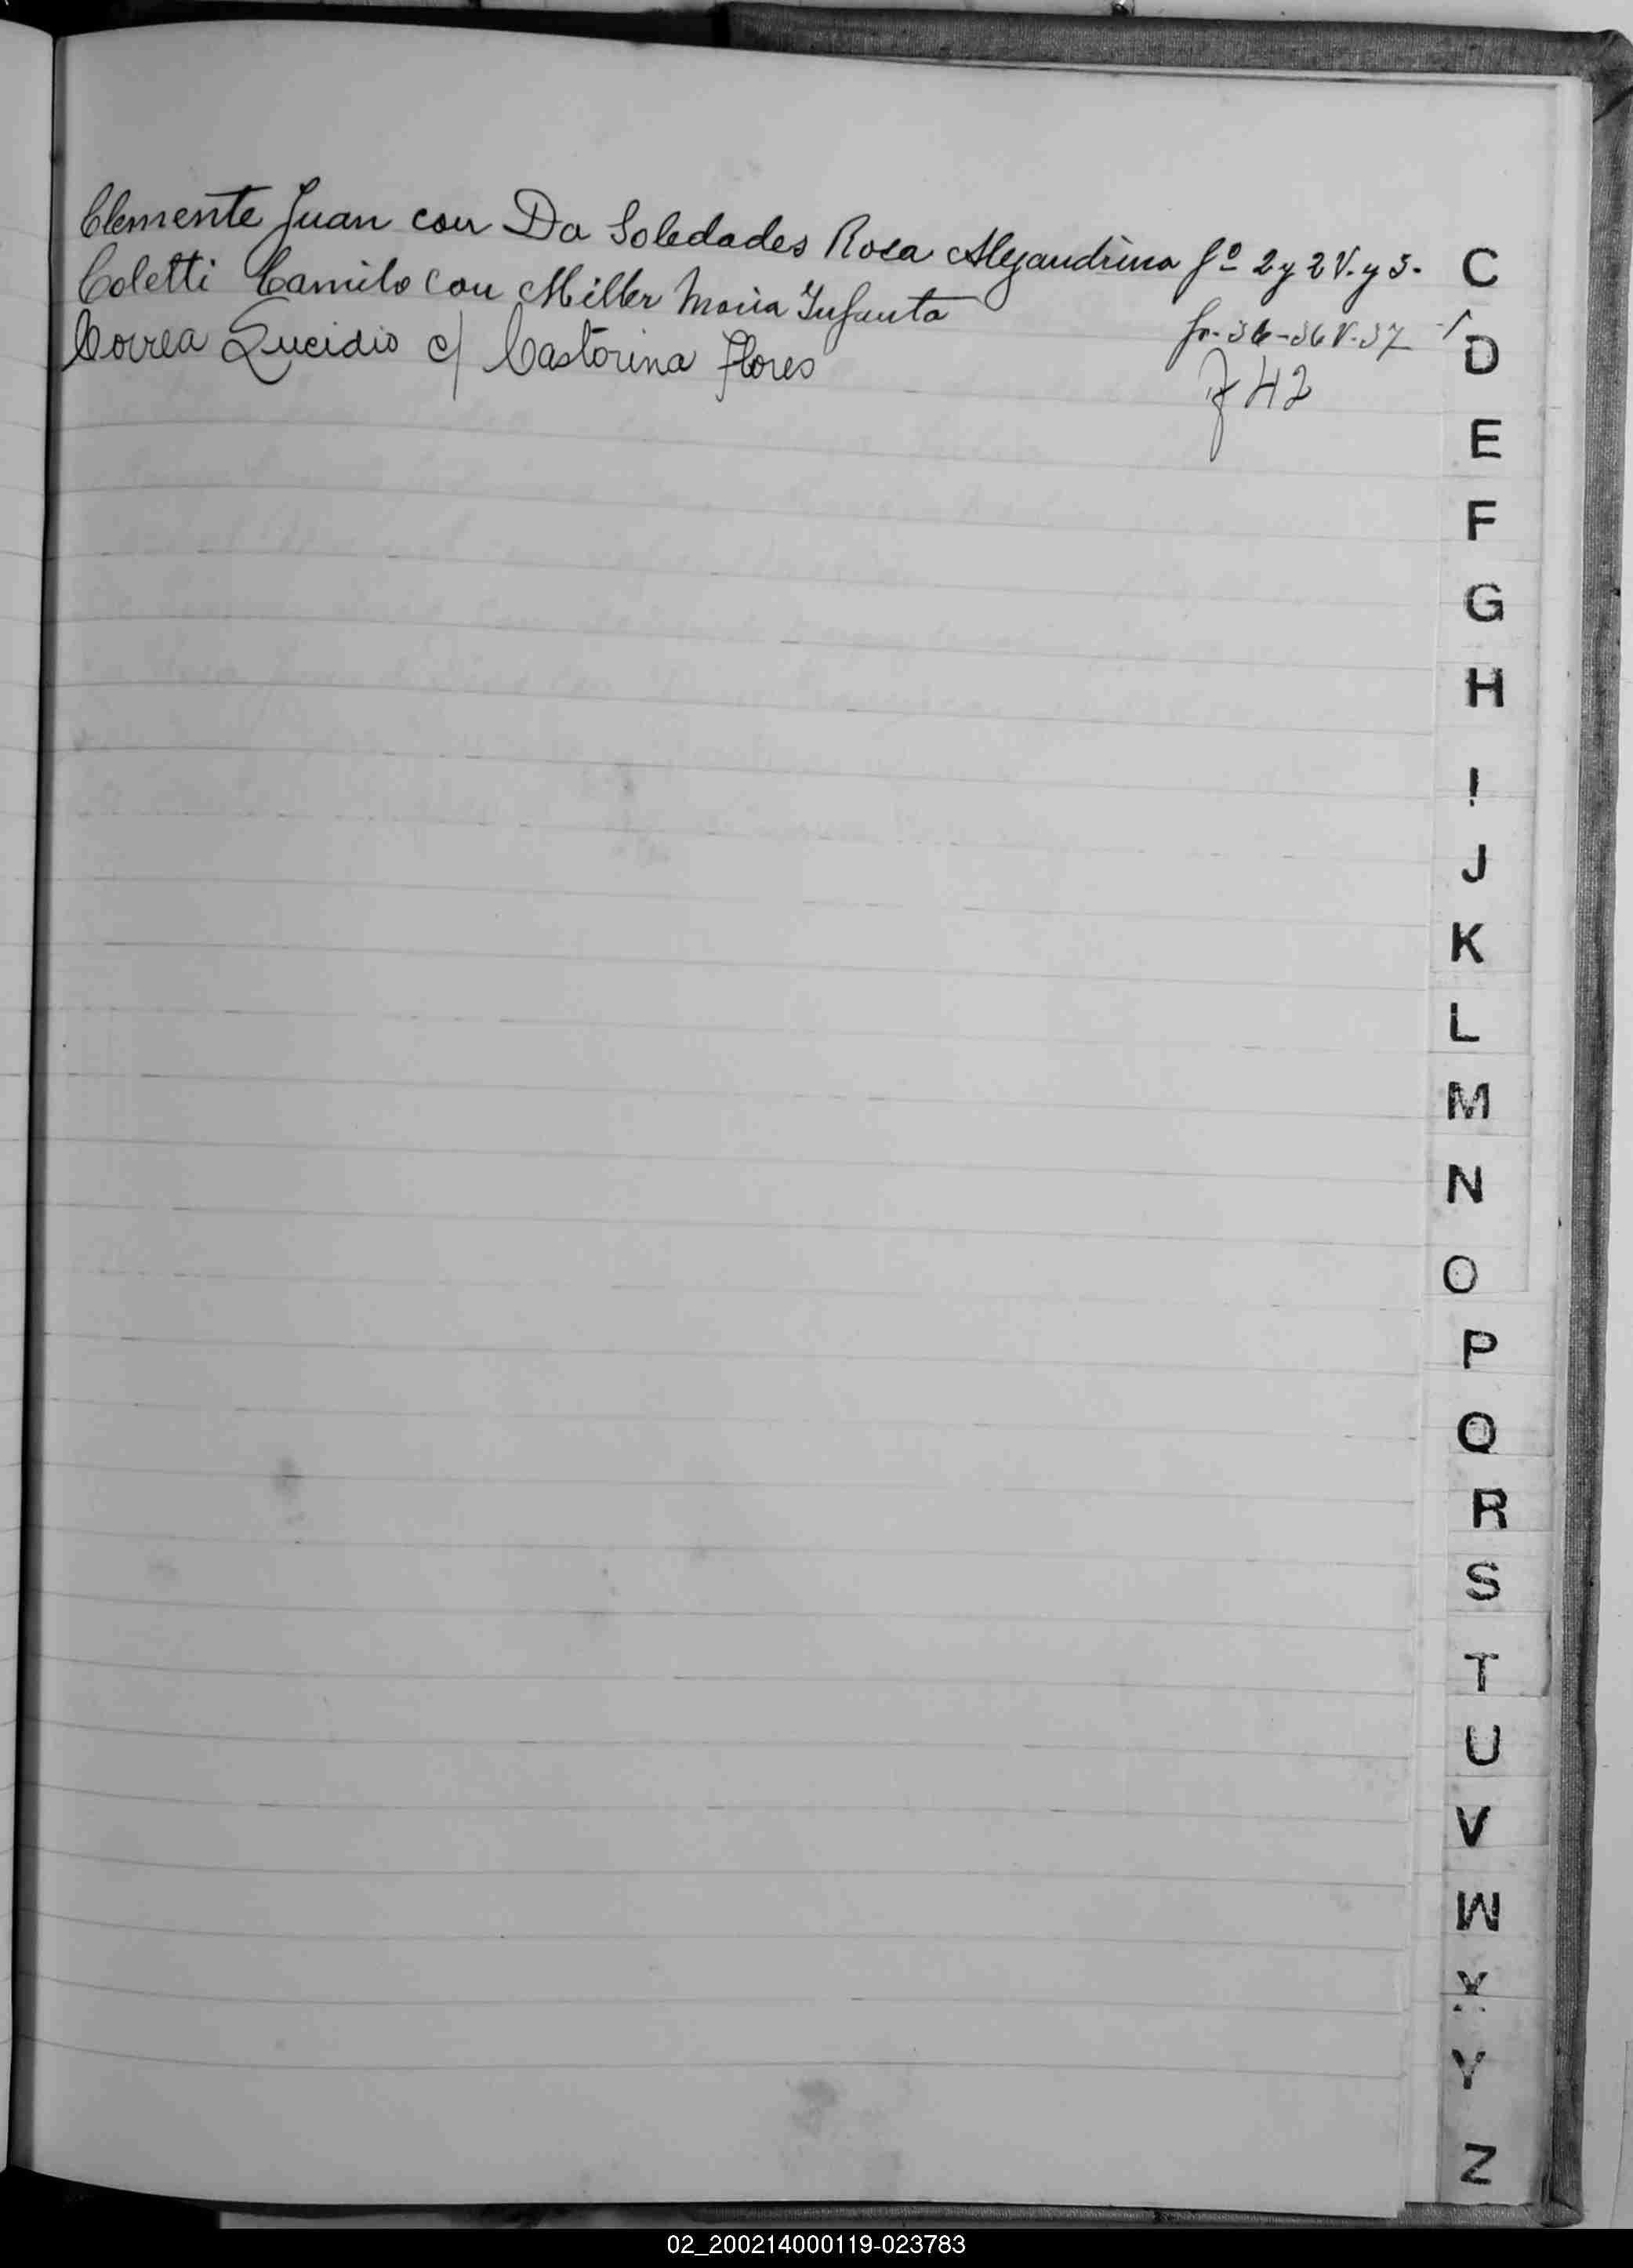 Clemente Juan con Da Soledades Rosa Alejandrina fº 2 y 2 V. y 3.
Coletti Camilo con Miller Maria Infanta fs. 36-36 V. 37
Correa Lucidio c/ Castorina Flores f 42
C
D
E
F
G
H
I
J
K
L
M
N
O
P
Q
R
S
T
U
V
W
X
Y
Z
02_200214000119-023783